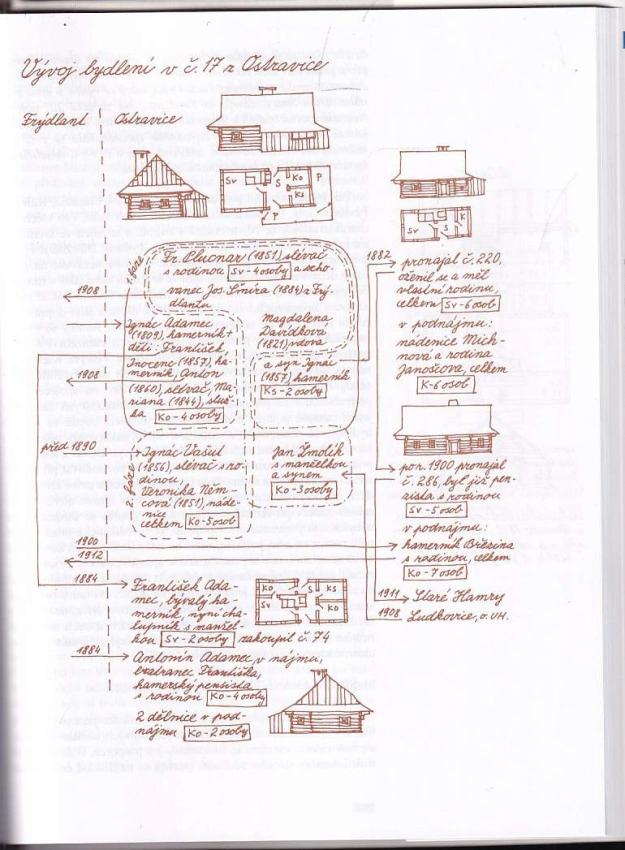 Vývoj bydlení v č. 17 z Ostravice
Frýdlant
Ostravice
Sv
S
Ko
Ks
P
P
Sv
S
K
1. fáze
Fr. Plucnar (1851) slévač
s rodinou Sv - 4 osoby a scho-
vanec Jos. Šmíra (1884) z Frý-
dlantu
1908
Ignác Adamec
(1809), hamerník +
děti: František
Inocenc (1857), ha-
merník, Anton
(1860), slévač, Ma-
riana (1844), služ-
ka Ko - 4 osoby
1908
Magdalena
Davidková
(1821), vdova
a syn Ignác
(1857) hamerník
Ks - 2 osoby
1882
pronajal č. 220,
oženil se a měl
vlastní rodinu,
celkem Sv - 6 osob
v podnájmu:
nádenice Mich-
nová a rodina
Janošcova, celkem
K - 6 osob
před 1890
2. fáze
Ignác Vašut
(1856), slévač s ro-
dinou,
Veronika Něm-
cová (1851), náde-
nice
celkem Ko - 5 osob
Jan Žmolík
s manželkou
a synem
Ko - 3 osoby
por. 1900 pronajal
č. 286, byl již pen-
zista s rodinou
Sv - 5 osob
v podnájmu:
hamerník Březina
s rodinou, celkem
Ko - 7 osob
1900
1912
1884
František Ada-
mec, bývalý ha-
merník, nyní cha-
lupník s manžel-
kou Sv - 2 osoby zakoupil č. 74
Ko
S
Ks
Sv
Ko
1911 Staré Hamry
1908 Ludkovice, o. UH.
1884
Antonín Adamec, v nájmu,
bratranec Františka,
hamerský pensista
s rodinou Ko - 4 osoby
2 dělnice v pod-
nájmu Ko - 2 osoby